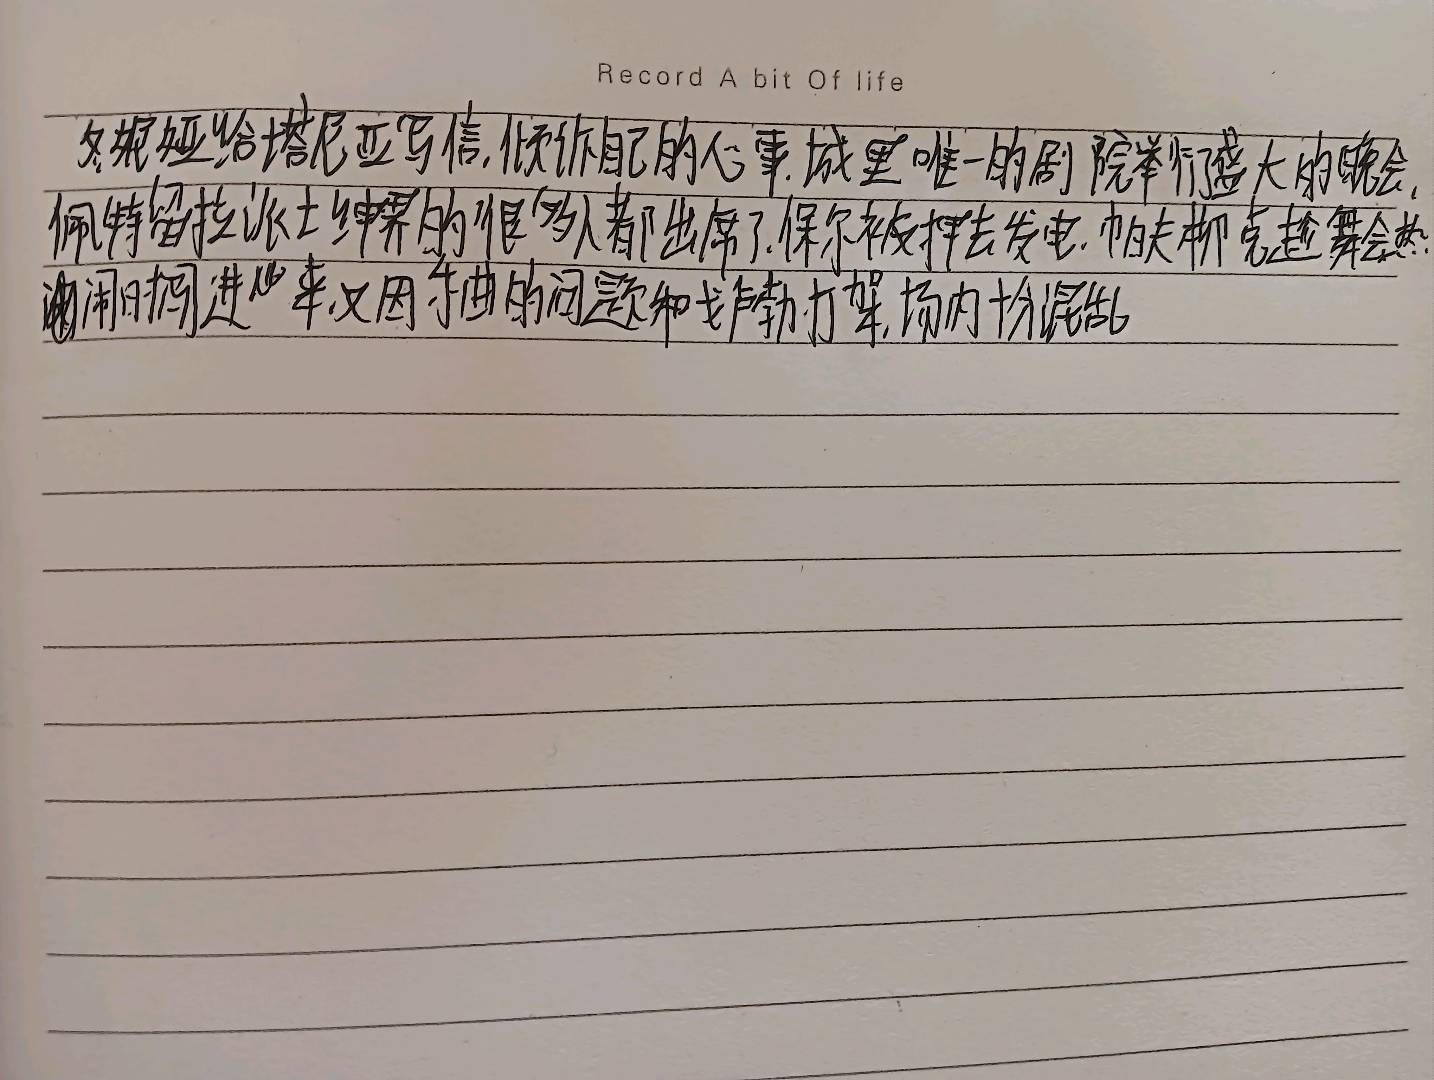 Record A bit Of life
冬妮娅给塔尼亚写信,倾诉自己的心事.城里唯一的剧院举行了盛大的晚会,
佩特留拉派士绅界的很多人都出席了.保尔被押去发电.帕夫柳克趁舞会热
闹时闯进来,又因乐曲的问题和戈卢勃打架,场内十分混乱